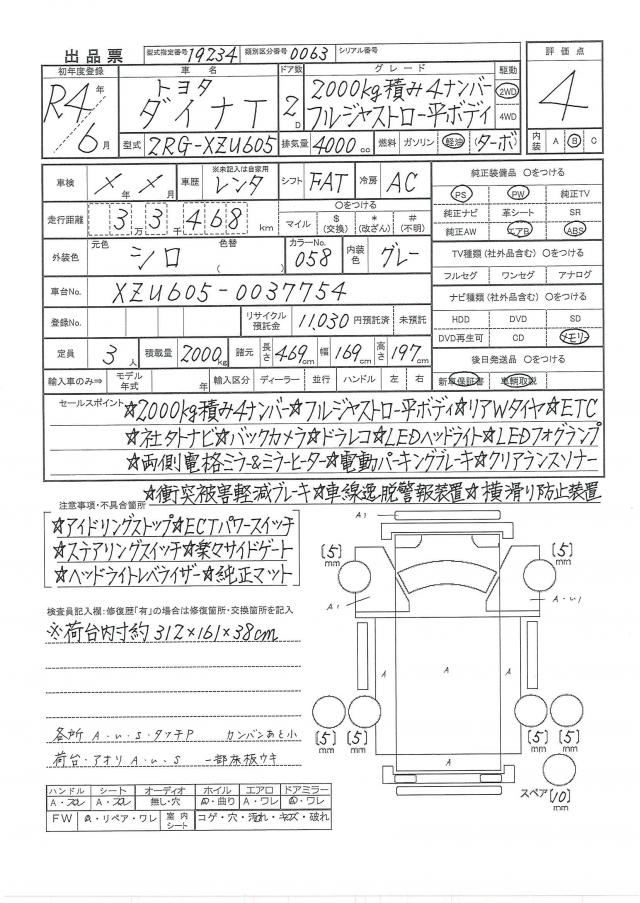 出品票 型式指定番号 19234 類別区分番号 0063 シリアル番号
初年度登録 車名 ドア数 グレード 駆動 評価点
R4年 6月 トヨタ ダイナT 2D 2000kg積み4ナンバー フルジャストロー平ボディ 2WD 4WD 4
型式 2RG-XZU605 排気量 4000cc 燃料 ガソリン 軽油 (ターボ) 内装 A B C
車検 X年 X月 車歴 ※未記入は自家用 レンタ シフト FAT 冷房 AC
純正装備品 〇をつける
PS PW 純正TV
走行距離 33千468km
万
〇をつける
マイル $(交換) *(改ざん) #(不明)
純正ナビ 革シート SR
純正AW エアB ABS
外装色 元色 シロ 色替 ( ) カラーNo. 058 内装色 グレー
TV種類(社外品含む) 〇をつける
フルセグ ワンセグ アナログ
車台No. XZU605-0037754
ナビ種類(社外品含む) 〇をつける
登録No. リサイクル預託金 11,030円預託済 未預託
HDD DVD SD
DVD再生可 CD メモリー
定員 3人 積載量 2000kg 諸元 長さ 469cm 幅 169cm 高さ 197cm
後日発送品 〇をつける
輸入車のみ⇒ モデル年式 年 輸入区分 ディーラー 並行 ハンドル 左 右
新車保証書 車輌取説
セールスポイント ☆2000kg積み4ナンバー☆フルジャストロー平ボディ☆リアWタイヤ☆ETC
☆社外ナビ☆バックカメラ☆ドラレコ☆LEDヘッドライト☆LEDフォグランプ
☆両側電格ミラー&ミラーヒーター☆電動パーキングブレーキ☆クリアランスソナー
☆衝突被害軽減ブレーキ☆車線逸脱警報装置☆横滑り防止装置
注意事項・不具合箇所
☆アイドリングストップ☆ECTパワースイッチ
☆ステアリングスイッチ☆楽々サイドゲート
☆ヘッドライトレベライザー☆純正マット
検査員記入欄:修復歴「有」の場合は修復箇所・交換箇所を記入
※荷台内寸約312×161×38cm
各所 A・U・S・タッチP カンバンあと小
荷台・アオリ A・U・S 一部床板ウキ
A1
[5]mm [5]mm
A1 A・U1
A A A
[5]mm [5]mm [5]mm [5]mm
A
スペア[10]mm
ハンドル シート オーディオ ホイル エアロ ドアミラー
A・スレ A・スレ 無し・穴 ・曲り A・ワレ ・ワレ
FW ・リペア・ワレ 室内シート コゲ・穴・汚れ・キズ・破れ